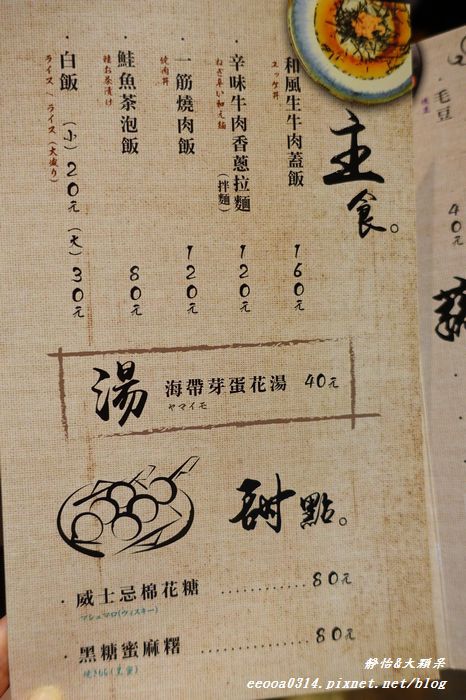 主食。
和風生牛肉蓋飯 160元
ユッケ丼
辛味牛肉香蔥拉麵(拌麵) 120元
一筋燒肉飯 120元
焼肉丼
鮭魚茶泡飯 80元
鮭お茶漬け
白飯 (小)20元 (大)30元
ライス、ライス(大盛り)
湯
海帶芽蛋花湯 40元
ヤマイモ
甜點。
· 威士忌棉花糖 ............ 80元
マシュマロ(ウィスキー)
· 黑糖蜜麻糬 ............ 80元
· 毛豆
40元
靜怡&大顆呆
eeooa0314.pixnet.net/blog